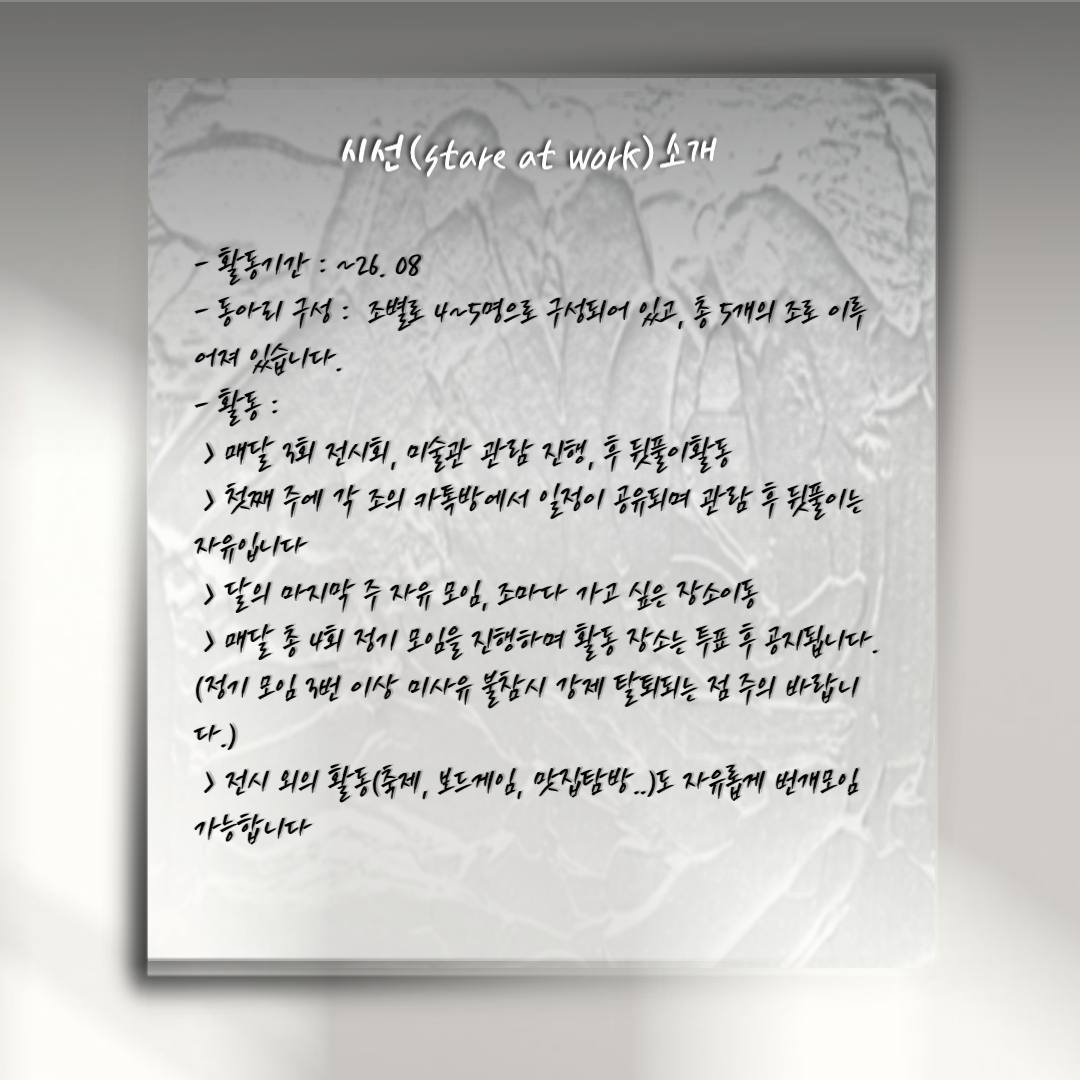 시선(stare at work)소개
- 활동기간 : ~26. 08
- 동아리 구성 : 조별로 4~5명으로 구성되어 있고, 총 5개의 조로 이루
어져 있습니다.
- 활동 :
> 매달 3회 전시회, 미술관 관람 진행, 후 뒷풀이활동
> 첫째 주에 각 조의 카톡방에서 일정이 공유되며 관람 후 뒷풀이는
자유입니다
> 달의 마지막 주 자유 모임, 조마다 가고 싶은 장소이동
> 매달 총 4회 정기 모임을 진행하며 활동 장소는 투표 후 공지됩니다.
(정기 모임 3번 이상 미사유 불참시 강제 탈퇴되는 점 주의 바랍니
다.)
> 전시 외의 활동(축제, 보드게임, 맛집탐방..)도 자유롭게 번개모임
가능합니다